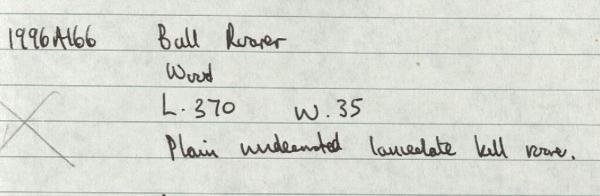 1996A166 Bull Roarer
Wood
L. 370 W. 35
Plain undecorated lanceolate bull roarer.